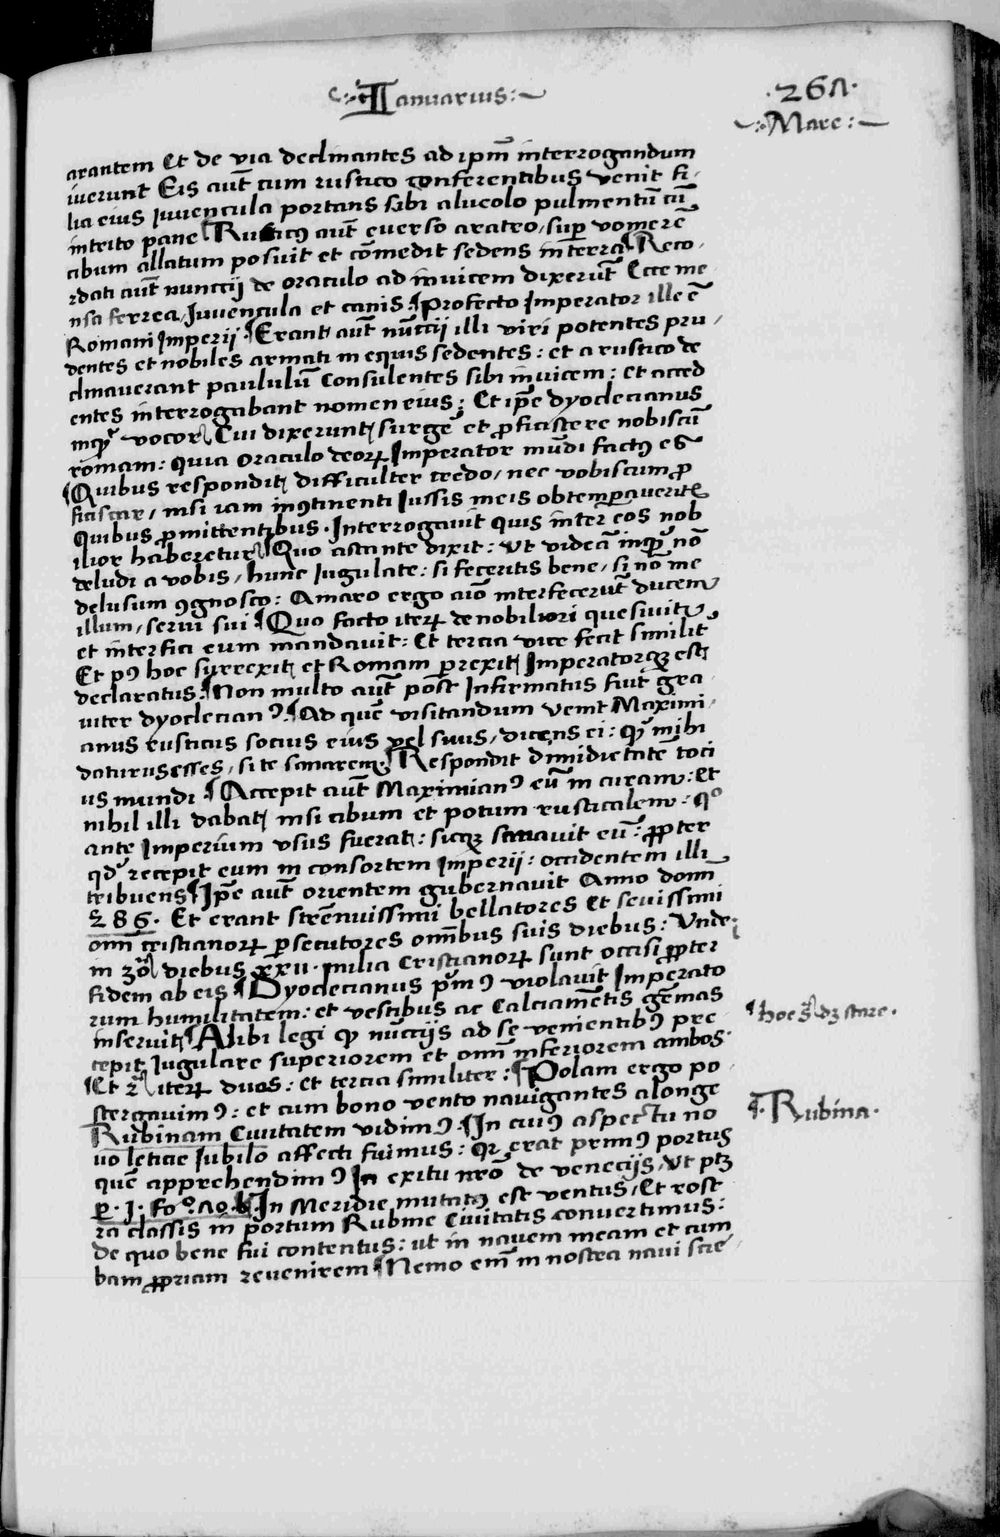 Ianuarius
·267·
Mare
arantem Et de via declinantes ad ipm̄ interrogandum
iverunt Eis aūt cum rustico conferentibus venit fi-
lia eius Iuvencula portans sibi alveolo pulmentū cū
intrito pane Rusticꝰ aūt everso aratro / sup vomerē
cibum allatum posuit et cōmedit sedens in terra Reco-
rdati aūt nunccij de oraculo ad invicem dixerūt Ecce me-
nsa ferrea / Iuvencula et canis. Profecto Imperator ille ē
Romani Imperij Erant aūt nūccij illi viri potentes pru-
dentes et nobiles armati in equis sedentes: et a rustico de
clinaverant paululū Consulentes sibi invicem: et acced
entes interrogabant nomen eius: Et ip̄e dyoclecianus
inqͥ vocor Cui dixerunt surge et ꝓficiscere nobiscū
romam: quia oraculo deoꝝ Imperator mūdi factꝰ es
Quibus respondit difficulter credo / nec vobiscum ꝓ
ficiscar / nisi iam inꝯtinenti Iussis meis obtemꝑaveritis
Quibus ꝓmittentibus. Interrogavit quis inter eos nob
ilior haberetur Quo astante dixit: ut videā inqͥ nō
deludi a vobis / hunc Iugulate: si feceritis bene / si nō me
delusum ꝯgnosco: Amaro ergo aīo interfecerūt ducem
illum / servi sui Quo facto iteꝝ de nobiliori quesivit
et interfici eum mandavit: Et tercia vice fecit similit
Et pꝰ hoc surrexit et Romam ꝑrexit Imperatorqꝫ est
declaratus. Non multo aūt pōst Infirmatus fuit gra-
viter dyoclecianꝰ. Ad quē visitandum venit Maximi-
anus rusticus socius eius vel suus / dicens ei: qͥ mihi
daturus esses / si te sanarem. Respondit dimidietatē toci
us mundi. Accepit aūt Maximianꝰ eū in curam: et
nihil illi dabat nisi cibum et potum rusticalem: qͦ
ante Imperium usus fuerat: sicqꝫ sanavit eū: ꝓpter
qd̓ recepit eum in consortem Imperij: occidentem illi
tribuens Ip̄e aūt orientem gubernavit Anno domi
286. Et erant strēnuissimi bellatores et sevissimi
om̄ cristianoꝝ ꝑsecutores om̄ibus suis diebus: Unde
in 30 diebus xxii. milia Cristianoꝝ sunt occisi ꝓpter
fidem ab eis Dyoclecianus pͥmꝰ violavit Imperato
rum humilitatem: et vestibus ac Calciamētis gēmas
inseruit Alibi legi qͥ nūccijs ad se venientibꝰ pre
cepit Iugulare superiorem et om̄ inferiorem ambos.
Et 2 iteꝝ duos: et tercia similiter: Polam ergo po-
stergavimꝰ: et cum bono vento navigantes a longe
Rubinam Civitatem vidimꝰ. In cuiꝰ aspectu no
vo leticie Iubilo affecti fuimus: qꝛ erat primꝰ portus
quē apprehendimꝰ In exitu nr̄o de venecijs / ut ptꝫ
ꝑ. 1. fo. 20. b. In Meridie mutatꝰ est ventus / Et rost
ra classis in portum Rubine Civitatis convertimus:
de quo bene fui contentus: ut in navem meam et cum
bam ꝓpriam revenirem Nemo em̄ in nostra navi scie-
hoc dꝫ stare.
Rubina.